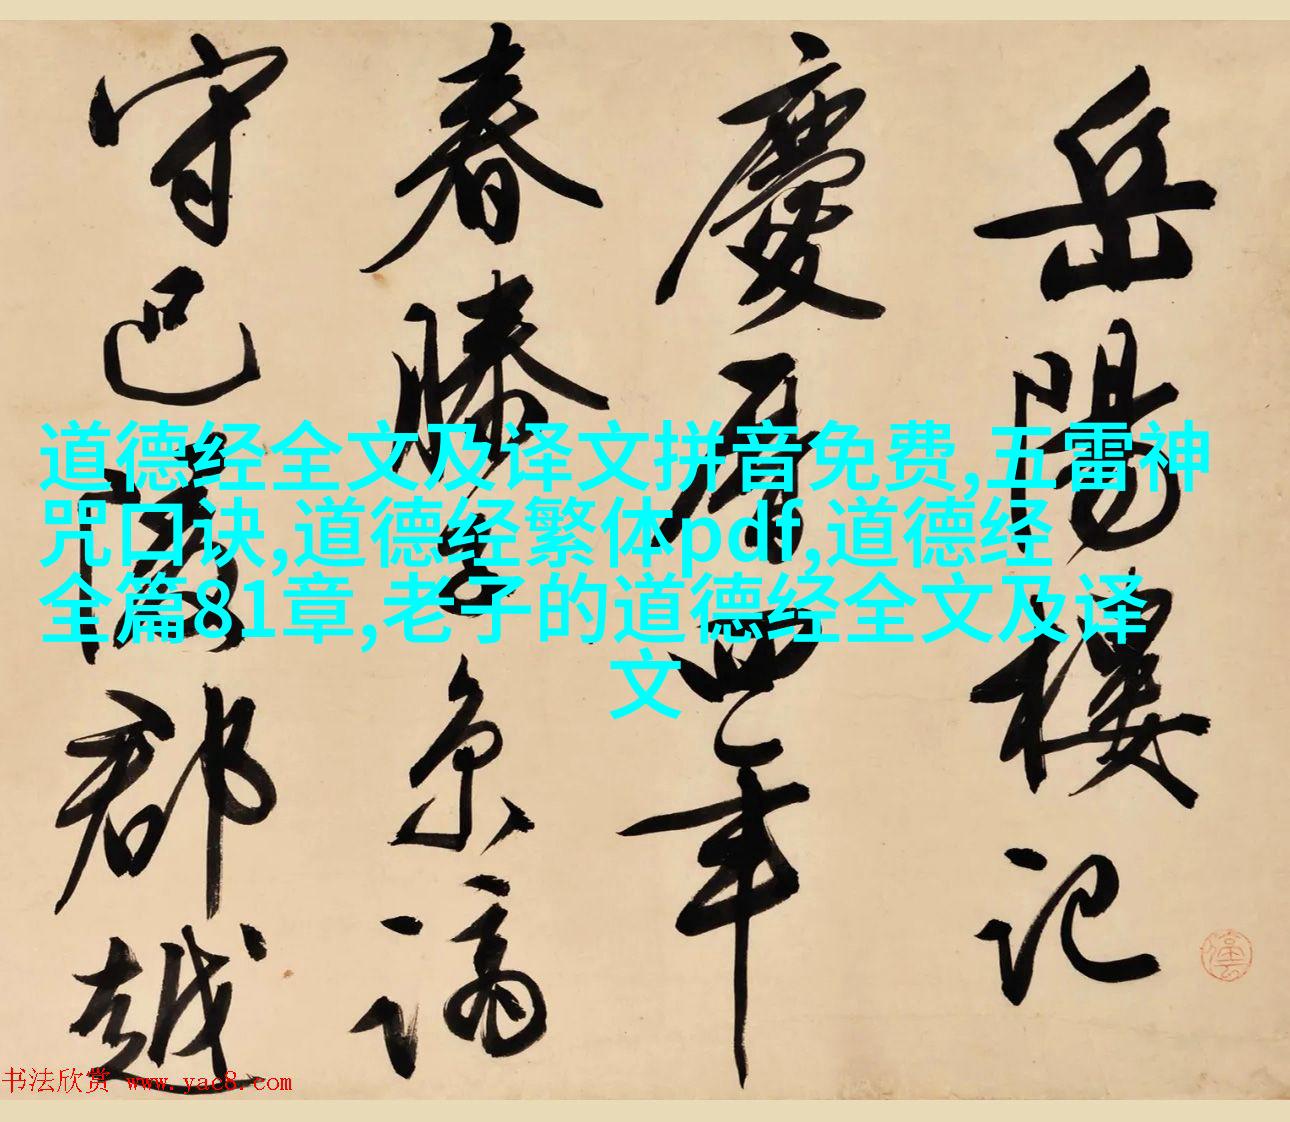 岳陽樓記
慶曆四年
春滕子京謫
守巴陵郡越
道德经全文及译文拼音免费,五雷神
咒口诀,道德经繁体pdf,道德经
全篇81章,老子的道德经全文及译
文
书法欣赏 www.yac8.com